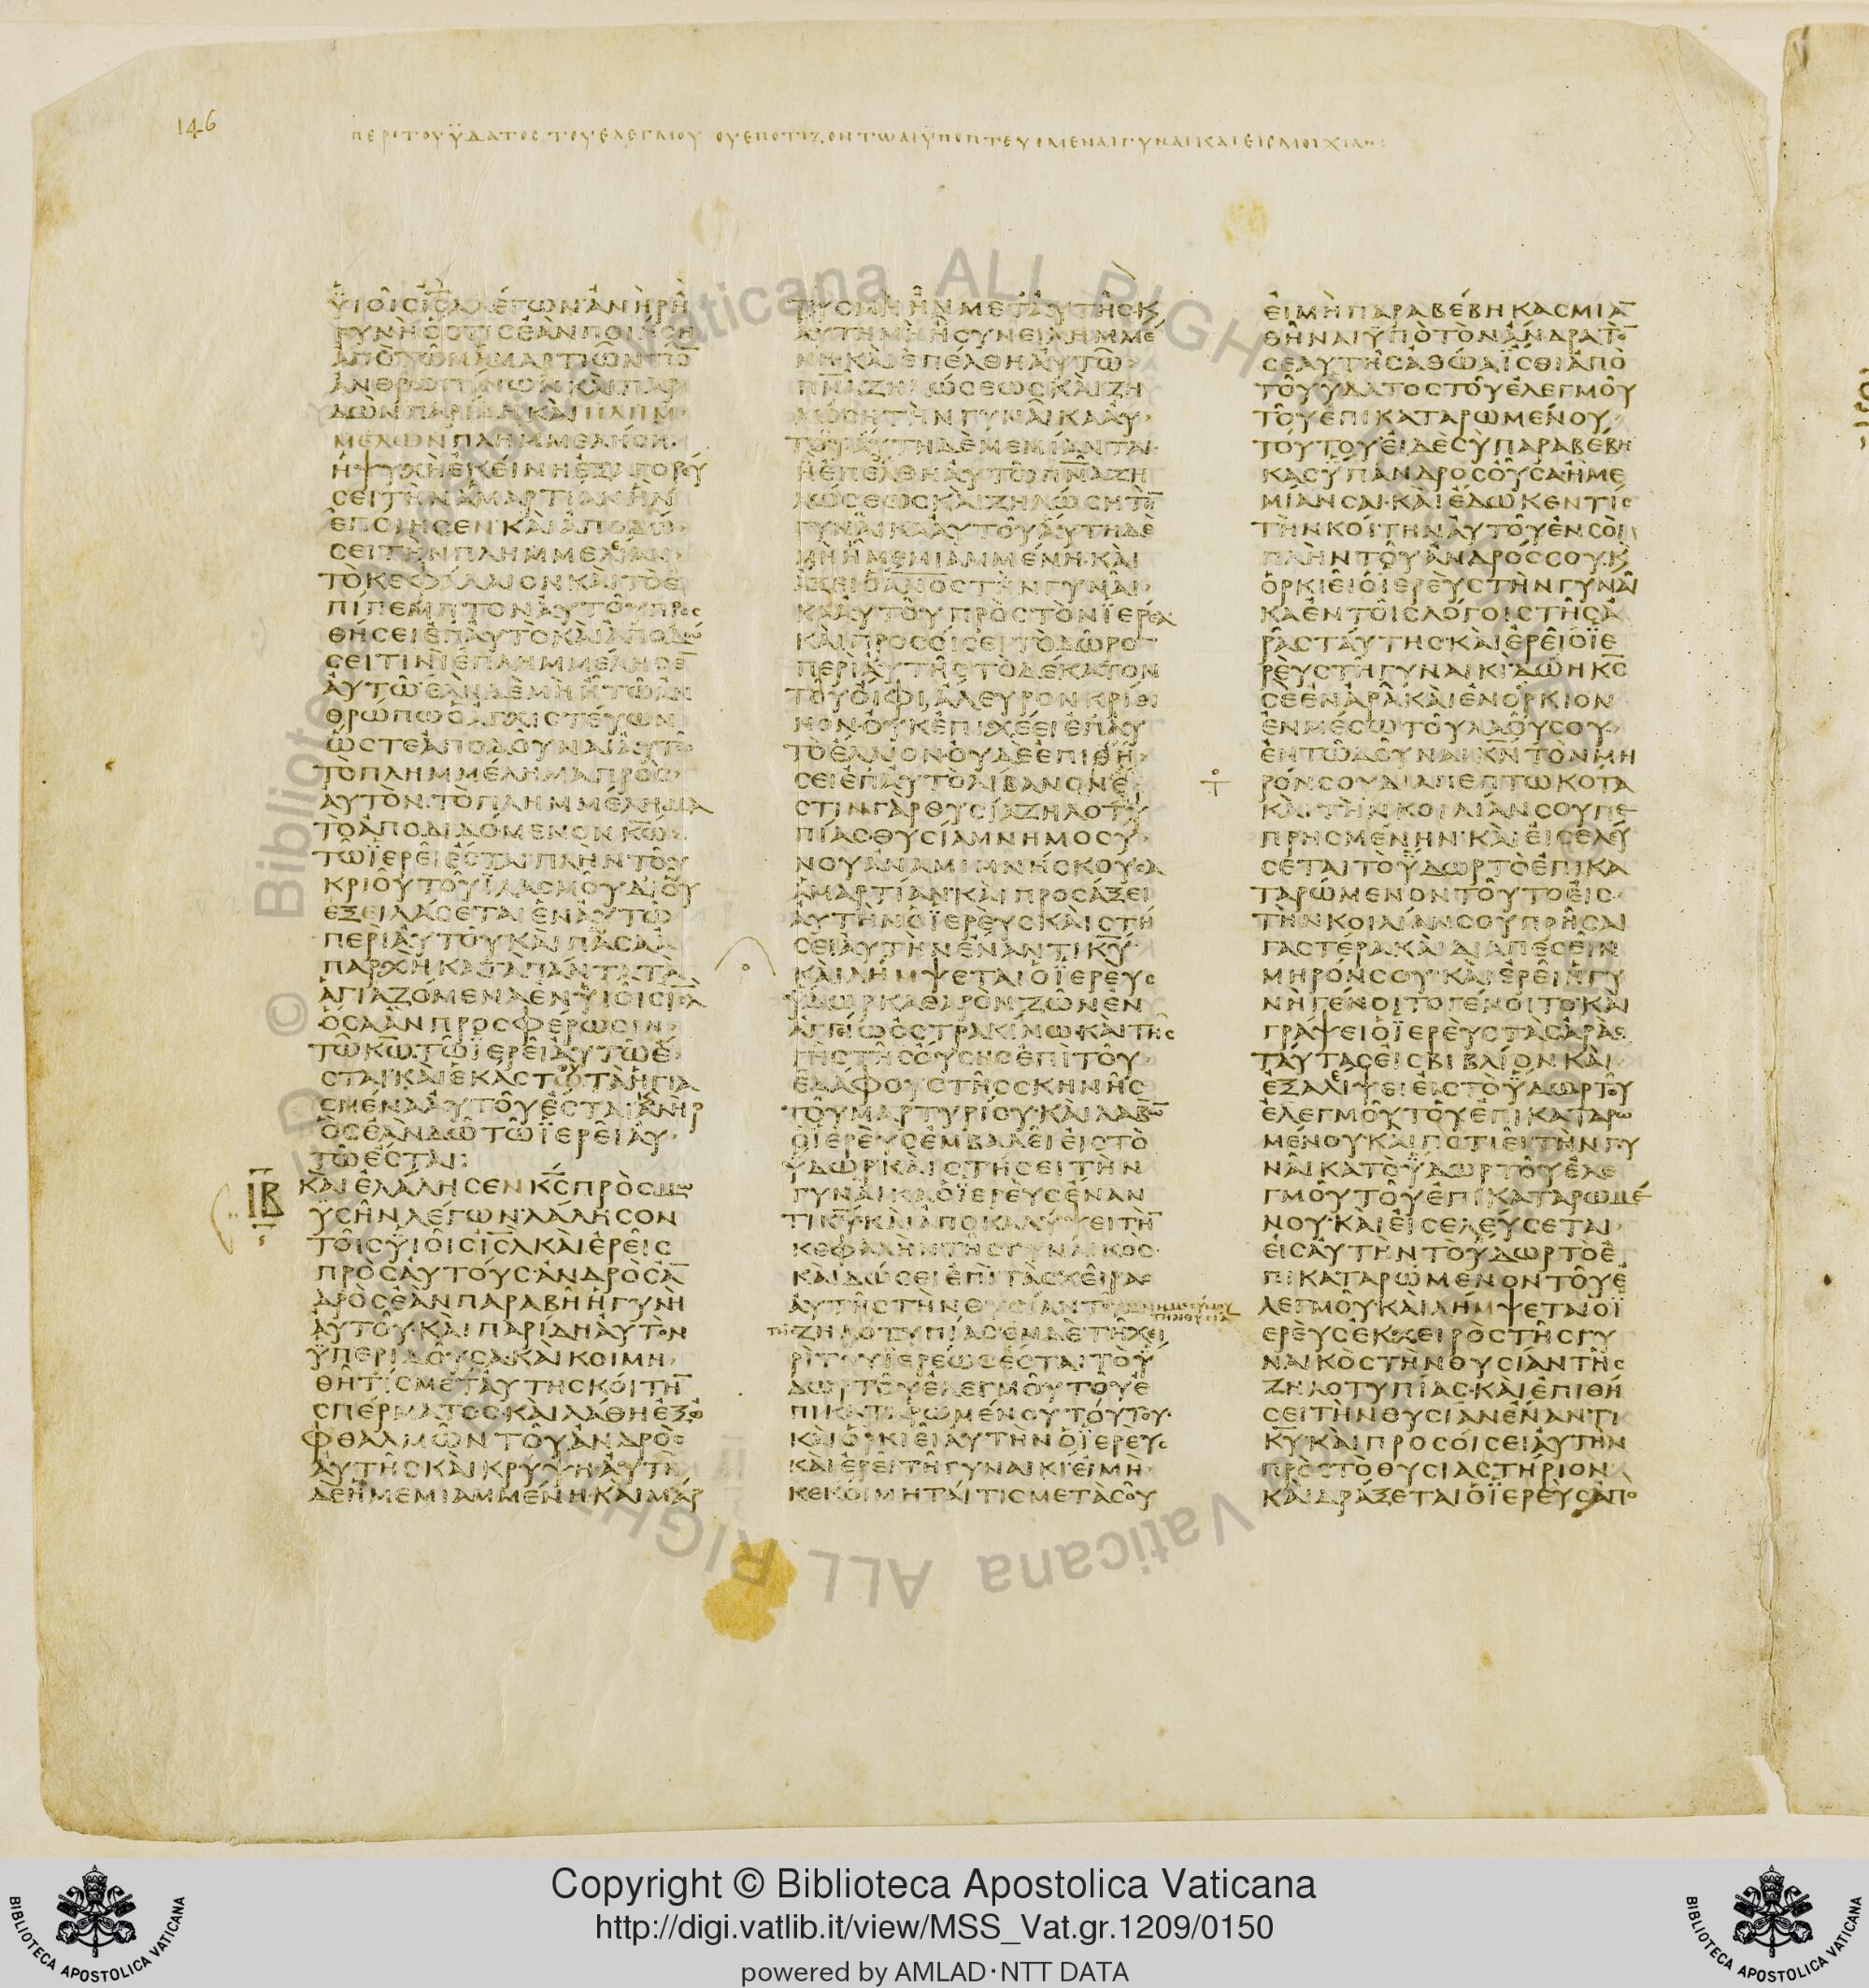 146
ΠΕΡΙ ΤΟΥ ΫΔΑΤΟϹ ΤΟΥ ΕΛΕΓΜΟΥ ΟΥ ΕΠΟΤΙΖΟΝΤΩ ΑΙ ΫΠΟΠΤΕΥΟΜΕΝΑΙ ΓΥΝΑΙΚΑΙ ΕΙϹ ΜΟΙΧΙΑΝ:
ΫΙΟΙϹ ΙϹ̅Λ̅ ΛΕΓΩΝ ΑΝΗΡ Η
ΓΥΝΗ ΟϹΤΙϹ ΕΑΝ ΠΟΙΗϹΗ
ΑΠΟ ΤΩΝ ΑΜΑΡΤΙΩΝ ΤΩ̅
ΑΝΘΡΩΠΙΝΩΝ ΚΑΙ ΠΑΡΙ
ΔΩΝ ΠΑΡΙΔΗ ΚΑΙ ΠΛΗΜ
ΜΕΛΩΝ ΠΛΗΜΜΕΛΗϹΗ
Η ΨΥΧΗ ΕΚΕΙΝΗ ΕΞΑΓΟΡΕΥ
ϹΕΙ ΤΗΝ ΑΜΑΡΤΙΑΝ ΗΝ
ΕΠΟΙΗϹΕΝ ΚΑΙ ΑΠΟΔΩ
ϹΕΙ ΤΗΝ ΠΛΗΜΜΕΛΙΑΝ
ΤΟ ΚΕΦΑΛΑΙΟΝ ΚΑΙ ΤΟ Ε
ΠΙΠΕΜΠΤΟΝ ΑΥΤΟΥ ΠΡΟϹ
ΘΗϹΕΙ ΕΠ ΑΥΤΟ ΚΑΙ ΑΠΟΔΩ
ϹΕΙ ΤΙΝΙ ΕΠΛΗΜΜΕΛΗϹΕ̅
ΑΥΤΩ ΕΑΝ ΔΕ ΜΗ Η ΤΩ ΑΝ
ΘΡΩΠΩ Ο ΑΓΧΙϹΤΕΥΩΝ
ΩϹΤΕ ΑΠΟΔΟΥΝΑΙ ΑΥΤΩ
ΤΟ ΠΛΗΜΜΕΛΗΜΑ ΠΡΟϹ
ΑΥΤΟΝ ΤΟ ΠΛΗΜΜΕΛΗΜΑ
ΤΟ ΑΠΟΔΙΔΟΜΕΝΟΝ Κ̅Ω̅
ΤΩ ΪΕΡΕΙ ΕϹΤΑΙ ΠΛΗΝ ΤΟΥ
ΚΡΙΟΥ ΤΟΥ ΪΛΑϹΜΟΥ ΔΙ ΟΥ
ΕΞΕΙΛΑϹΕΤΑΙ ΕΝ ΑΥΤΩ
ΠΕΡΙ ΑΥΤΟΥ ΚΑΙ ΠΑϹΑ Α
ΠΑΡΧΗ ΚΑΤΑ ΠΑΝΤΑ ΤΑ
ΑΓΙΑΖΟΜΕΝΑ ΕΝ ΫΙΟΙϹ ΙϹ̅Λ̅
ΟϹΑ ΑΝ ΠΡΟϹΦΕΡΩϹΙΝ
ΤΩ Κ̅Ω̅ ΤΩ ΪΕΡΕΙ ΑΥΤΩ Ε
ϹΤΑΙ ΚΑΙ ΕΚΑϹΤΟΥ ΤΑ ΗΓΙΑ
ϹΜΕΝΑ ΑΥΤΟΥ ΕϹΤΑΙ ΑΝΗΡ
ΟϹ ΕΑΝ ΔΩ ΤΩ ΪΕΡΕΙ ΑΥ
ΤΩ ΕϹΤΑΙ:
ΙΒ ΚΑΙ ΕΛΑΛΗϹΕΝ Κ̅Ϲ̅ ΠΡΟϹ ΜΩ
ΥϹΗΝ ΛΕΓΩΝ ΛΑΛΗϹΟΝ
ΤΟΙϹ ΫΙΟΙϹ ΙϹ̅Λ̅ ΚΑΙ ΕΡΕΙϹ
ΠΡΟϹ ΑΥΤΟΥϹ ΑΝΔΡΟϹ Α̅
ΔΡΟϹ ΕΑΝ ΠΑΡΑΒΗ Η ΓΥΝΗ
ΑΥΤΟΥ ΚΑΙ ΠΑΡΙΔΗ ΑΥΤΟΝ
ΫΠΕΡΙΔΟΥϹΑ ΚΑΙ ΚΟΙΜΗ
ΘΗ ΤΙϹ ΜΕΤ ΑΥΤΗϹ ΚΟΙΤΗ̅
ϹΠΕΡΜΑΤΟϹ ΚΑΙ ΛΑΘΗ ΕΞ Ο
ΦΘΑΛΜΩΝ ΤΟΥ ΑΝΔΡΟϹ
ΑΥΤΗϹ ΚΑΙ ΚΡΥΨΗ ΑΥΤΗ
ΔΕ Η ΜΕΜΙΑΜΜΕΝΗ ΚΑΙ ΜΑΡ
ΤΥϹ ΜΗ ΗΝ ΜΕΤ ΑΥΤΗϹ Κ,
ΑΥΤΗ ΜΗ Η ϹΥΝΕΙΛΗΜΜΕ
ΝΗ ΚΑΙ ΕΠΕΛΘΗ ΑΥΤΩ
Π̅Ν̅Α̅ ΖΗΛΩϹΕΩϹ ΚΑΙ ΖΗ
ΛΩϹΗ ΤΗΝ ΓΥΝΑΙΚΑ ΑΥ
ΤΟΥ ΑΥΤΗ ΔΕ ΜΕΜΙΑΝΤΑΙ
Η ΕΠΕΛΘΗ ΑΥΤΩ Π̅Ν̅Α̅ ΖΗ
ΛΩϹΕΩϹ ΚΑΙ ΖΗΛΩϹΗ ΤΗ̅
ΓΥΝΑΙΚΑ ΑΥΤΟΥ ΑΥΤΗ ΔΕ
ΜΗ Η ΜΕΜΙΑΜΜΕΝΗ ΚΑΙ
ΑΞΕΙ Ο ΑΝ̅Ο̅Ϲ̅ ΤΗΝ ΓΥΝΑΙ
ΚΑ ΑΥΤΟΥ ΠΡΟϹ ΤΟΝ ΪΕΡΕΑ
ΚΑΙ ΠΡΟϹΟΙϹΕΙ ΤΟ ΔΩΡΟ̅
ΠΕΡΙ ΑΥΤΗϹ ΤΟ ΔΕΚΑΤΟΝ
ΤΟΥ ΟΙΦΙ ΑΛΕΥΡΟΝ ΚΡΙΘΙ
ΝΟΝ ΟΥΚ ΕΠΙΧΕΕΙ ΕΠ ΑΥ
ΤΟ ΕΛΑΙΟΝ ΟΥΔΕ ΕΠΙΘΗ
ϹΕΙ ΕΠ ΑΥΤΟ ΛΙΒΑΝΟΝ Ε
ϹΤΙΝ ΓΑΡ ΘΥϹΙΑ ΖΗΛΟΤΥ
ΠΙΑϹ ΘΥϹΙΑ ΜΝΗΜΟϹΥ
ΝΟΥ ΑΝΑΜΙΜΝΗϹΚΟΥϹΑ
ΑΜΑΡΤΙΑΝ ΚΑΙ ΠΡΟϹΑΞΕΙ
ΑΥΤΗΝ Ο ΪΕΡΕΥϹ ΚΑΙ ϹΤΗ
ϹΕΙ ΑΥΤΗΝ ΕΝΑΝΤΙ Κ̅Υ̅
ΚΑΙ ΛΗΜΨΕΤΑΙ Ο ΪΕΡΕΥϹ
ΫΔΩΡ ΚΑΘΑΡΟΝ ΖΩΝ ΕΝ
ΑΓΓΕΙΩ ΟϹΤΡΑΚΙΝΩ ΚΑΙ ΤΗϹ
ΓΗϹ ΤΗϹ ΟΥϹΗϹ ΕΠΙ ΤΟΥ
ΕΔΑΦΟΥϹ ΤΗϹ ϹΚΗΝΗϹ
ΤΟΥ ΜΑΡΤΥΡΙΟΥ ΚΑΙ ΛΑΒΩ̅
Ο ΙΕΡΕΥϹ ΕΜΒΑΛΕΙ ΕΙϹ ΤΟ
ΫΔΩΡ ΚΑΙ ϹΤΗϹΕΙ ΤΗΝ
ΓΥΝΑΙΚΑ Ο ΪΕΡΕΥϹ ΕΝΑΝ
ΤΙ Κ̅Υ̅ ΚΑΙ ΑΠΟΚΑΛΥΨΕΙ ΤΗ̅
ΚΕΦΑΛΗΝ ΤΗϹ ΓΥΝΑΙΚΟϹ
ΚΑΙ ΔΩϹΕΙ ΕΠΙ ΤΑϹ ΧΕΙΡΑϹ
ΑΥΤΗϹ ΤΗΝ ΘΥϹΙΑΝ ΤΟΥ ΜΝΗΜΟϹΥΝΟΥ
ΤΗΝ ΘΥϹΙΑ̅
ΤΗϹ ΖΗΛΟΤΥΠΙΑϹ ΕΝ ΔΕ ΤΗ ΧΕΙ
ΡΙ ΤΟΥ ΪΕΡΕΩϹ ΕϹΤΑΙ ΤΟ Ϋ
ΔΩΡ ΤΟΥ ΕΛΕΓΜΟΥ ΤΟΥ Ε
ΠΙΚΑΤΑΡΩΜΕΝΟΥ ΤΟΥΤΟΥ
ΚΑΙ ΟΡΚΙΕΙ ΑΥΤΗΝ Ο ΪΕΡΕΥϹ
ΚΑΙ ΕΡΕΙ ΤΗ ΓΥΝΑΙΚΙ ΕΙ ΜΗ
ΚΕΚΟΙΜΗΤΑΙ ΤΙϹ ΜΕΤΑ ϹΟΥ
ΕΙ ΜΗ ΠΑΡΑΒΕΒΗΚΑϹ ΜΙΑ̅
ΘΗΝΑΙ ΫΠΟ ΤΟΝ ΑΝΔΡΑ ΤΟ̅
ϹΕΑΥΤΗϹ ΑΘΩΑ ΙϹΘΙ ΑΠΟ
ΤΟΥ ΫΔΑΤΟϹ ΤΟΥ ΕΛΕΓΜΟΥ
ΤΟΥ ΕΠΙΚΑΤΑΡΩΜΕΝΟΥ
ΤΟΥΤΟΥ ΕΙ ΔΕ ϹΥ ΠΑΡΑΒΕΒΗ
ΚΑϹ ΫΠΑΝΔΡΟϹ ΟΥϹΑ Η ΜΕ
ΜΙΑΝϹΑΙ ΚΑΙ ΕΔΩΚΕΝ ΤΙϹ
ΤΗΝ ΚΟΙΤΗΝ ΑΥΤΟΥ ΕΝ ϹΟΙ
ΠΛΗΝ ΤΟΥ ΑΝΔΡΟϹ ϹΟΥ Κ,
ΟΡΚΙΕΙ Ο ΙΕΡΕΥϹ ΤΗΝ ΓΥΝΑΙ
ΚΑ ΕΝ ΤΟΙϹ ΛΟΓΟΙϹ ΤΗϹ Α
ΡΑϹ ΤΑΥΤΗϹ ΚΑΙ ΕΡΕΙ Ο ΪΕ
ΡΕΥϹ ΤΗ ΓΥΝΑΙΚΙ ΔΩΗ Κ̅Ϲ̅
ϹΕ ΕΝ ΑΡΑ ΚΑΙ ΕΝΟΡΚΙΟΝ
ΕΝ ΜΕϹΩ ΤΟΥ ΛΑΟΥ ϹΟΥ
ΕΝ ΤΩ ΔΟΥΝΑΙ Κ̅Ν̅ ΤΟΝ ΜΗ
ΡΟΝ ϹΟΥ ΔΙΑΠΕΠΤΩΚΟΤΑ
ΚΑΙ ΤΗΝ ΚΟΙΛΙΑΝ ϹΟΥ ΠΕ
ΠΡΗϹΜΕΝΗΝ ΚΑΙ ΕΙϹΕΛΕΥ
ϹΕΤΑΙ ΤΟ ΫΔΩΡ ΤΟ ΕΠΙΚΑ
ΤΑΡΩΜΕΝΟΝ ΤΟΥΤΟ ΕΙϹ
ΤΗΝ ΚΟΙΛΙΑΝ ϹΟΥ ΠΡΗϹΑΙ
ΓΑϹΤΕΡΑ ΚΑΙ ΔΙΑΠΕϹΕΙΝ
ΜΗΡΟΝ ϹΟΥ ΚΑΙ ΕΡΕΙ Η ΓΥ
ΝΗ ΓΕΝΟΙΤΟ ΓΕΝΟΙΤΟ ΚΑΙ
ΓΡΑΨΕΙ Ο ΪΕΡΕΥϹ ΤΑϹ ΑΡΑϹ
ΤΑΥΤΑϹ ΕΙϹ ΒΙΒΛΙΟΝ ΚΑΙ
ΕΞΑΛΕΙΨΕΙ ΕΙϹ ΤΟ ΫΔΩΡ ΤΟΥ
ΕΛΕΓΜΟΥ ΤΟΥ ΕΠΙΚΑΤΑΡΩ
ΜΕΝΟΥ ΚΑΙ ΠΟΤΙΕΙ ΤΗΝ ΓΥ
ΝΑΙΚΑ ΤΟ ΫΔΩΡ ΤΟΥ ΕΛΕ
ΓΜΟΥ ΤΟΥ ΕΠΙΚΑΤΑΡΩΜΕ
ΝΟΥ ΚΑΙ ΕΙϹΕΛΕΥϹΕΤΑΙ
ΕΙϹ ΑΥΤΗΝ ΤΟ ΫΔΩΡ ΤΟ Ε
ΠΙΚΑΤΑΡΩΜΕΝΟΝ ΤΟΥ Ε
ΛΕΓΜΟΥ ΚΑΙ ΛΗΜΨΕΤΑΙ Ο Ϊ
ΕΡΕΥϹ ΕΚ ΧΕΙΡΟϹ ΤΗϹ ΓΥ
ΝΑΙΚΟϹ ΤΗΝ ΘΥϹΙΑΝ ΤΗϹ
ΖΗΛΟΤΥΠΙΑϹ ΚΑΙ ΕΠΙΘΗ
ϹΕΙ ΤΗΝ ΘΥϹΙΑΝ ΕΝΑΝΤΙ
Κ̅Υ̅ ΚΑΙ ΠΡΟϹΟΙϹΕΙ ΑΥΤΗΝ
ΠΡΟϹ ΤΟ ΘΥϹΙΑϹΤΗΡΙΟΝ
ΚΑΙ ΔΡΑΞΕΤΑΙ Ο ΪΕΡΕΥϹ ΑΠΟ
Copyright © Biblioteca Apostolica Vaticana
http://digi.vatlib.it/view/MSS_Vat.gr.1209/0150
powered by AMLAD·NTT DATA